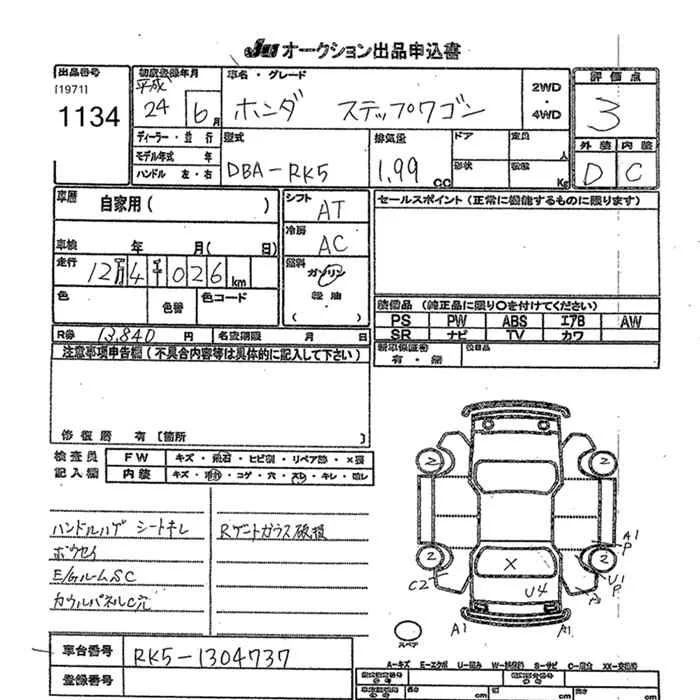 JU オークション出品申込書
出品番号
[1971]
1134
初度登録年月
平成
24 6月
車名・グレード
ホンダ ステップワゴン
2WD
・
4WD
評価点
3
外装 内装
D C
ディーラー・並行
モデル年式 年
ハンドル 左・右
型式
DBA-RK5
排気量
1.99 CC
ドア
形状
定員
人
積載
Kg
車歴 自家用( )
車検 年 月( 日)
走行 12万4千026km
色 色替 色コード
シフト AT
冷房 AC
燃料
ガソリン
軽油
( )
セールスポイント(正常に機能するものに限ります)
装備品(純正品に限り○を付けてください)
PS PW ABS エアB AW
SR ナビ TV カワ
新車保証書 有・無
後日品
R券 13,840円 名変期限 月 日
注意事項申告欄(不具合内容等は具体的に記入して下さい)
修復歴 有[箇所 ]
検査員
記入欄
FW キズ・飛石・ヒビ割・リペア跡・×要
内装 キズ・コゲ・穴・スレ・キレ
ハンドルハゲ シートキレ
Rゲートガラス破損
E/GルームSC
カウルパネルC穴
2 2
2 2
X
U4
C2
A1
P
U1
P
A1 A1
スペア
車台番号 RK5-1304737
登録番号
A-キズ E-エクボ U-凹み S-サビ C-腐食 XX-交換済
長さ cm cm